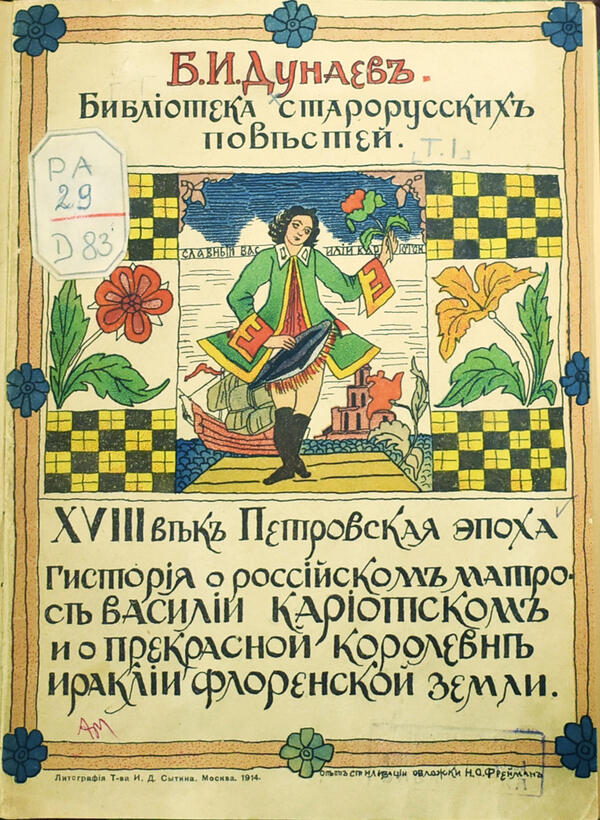 Б.И.ДУНАЕВЪ.
БИБЛІОТЕКА СТАРОРУССКИХЪ
ПОВѢСТЕЙ.
[Т. I]
РА
29
D 83
СЛАВНЫЙ ВАСИЛІЙ КАРІОТСКОЙ
XVIII ВѢКЪ ПЕТРОВСКАЯ ЭПОХА
ГИСТОРІЯ О РОССІЙСКОМЪ МАТРО-
СѢ ВАСИЛІИ КАРІОТСКОМЪ
И О ПРЕКРАСНОЙ КОРОЛЕВНѢ
ИРАКЛІИ ФЛОРЕНСКОЙ ЗЕМЛИ.
АМ
Литографія Т-ва И. Д. Сытина. Москва. 1914.
ОПЫТЪ СТИЛИЗАЦІИ ОБЛОЖКИ Н.О.ФРЕЙМАНЪ